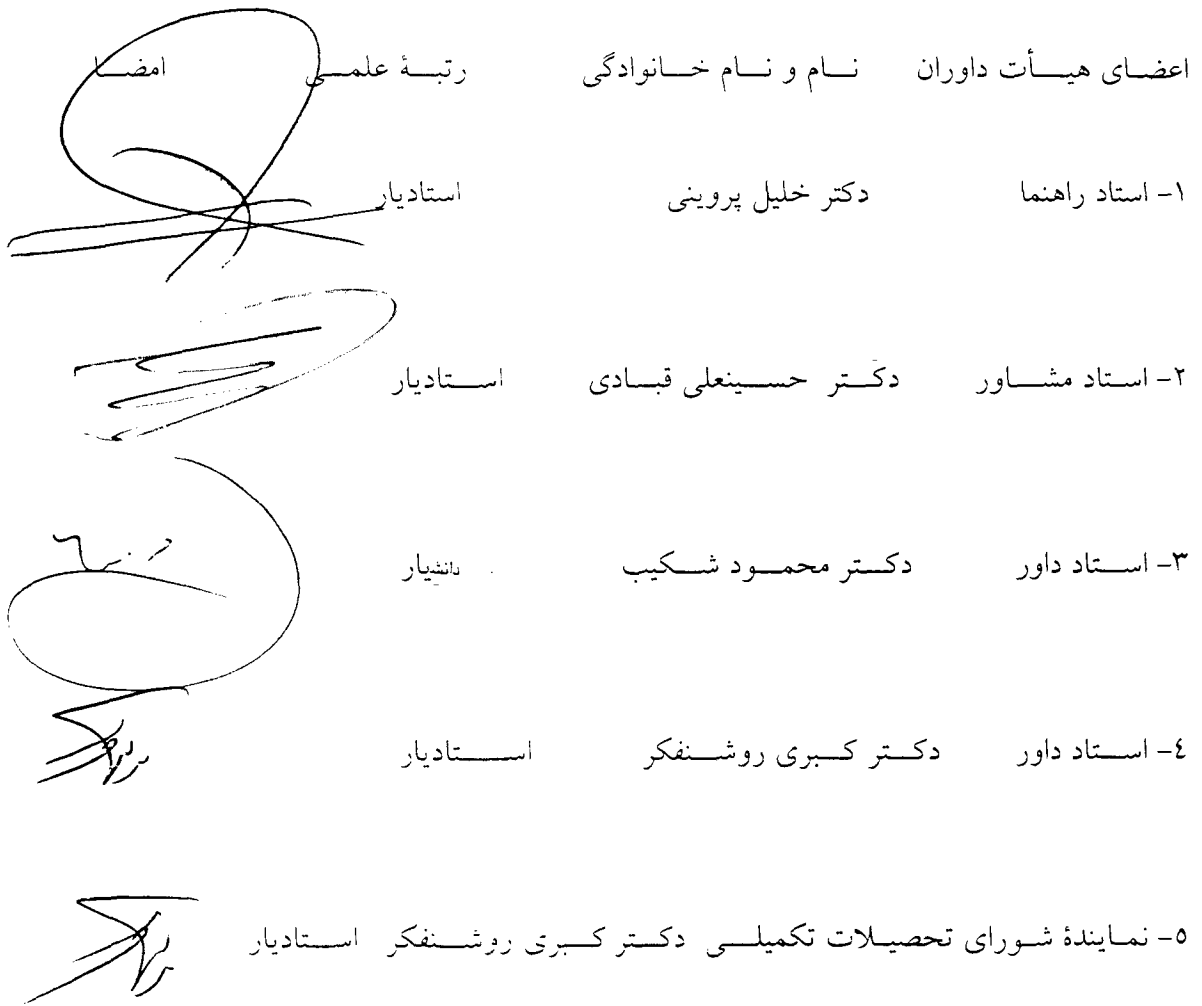 اعضای هیأت داوران نام و نام خانوادگی رتبۀ علمی امضا
۱- استاد راهنما دکتر خلیل پروینی استادیار
۲- استاد مشاور دکتر حسینعلی قبادی استادیار
۳- استاد داور دکتر محمود شکیب دانشیار
٤- استاد داور دکتر کبری روشنفکر استادیار
٥- نمایندۀ شورای تحصیلات تکمیلی دکتر کبری روشنفکر استادیار